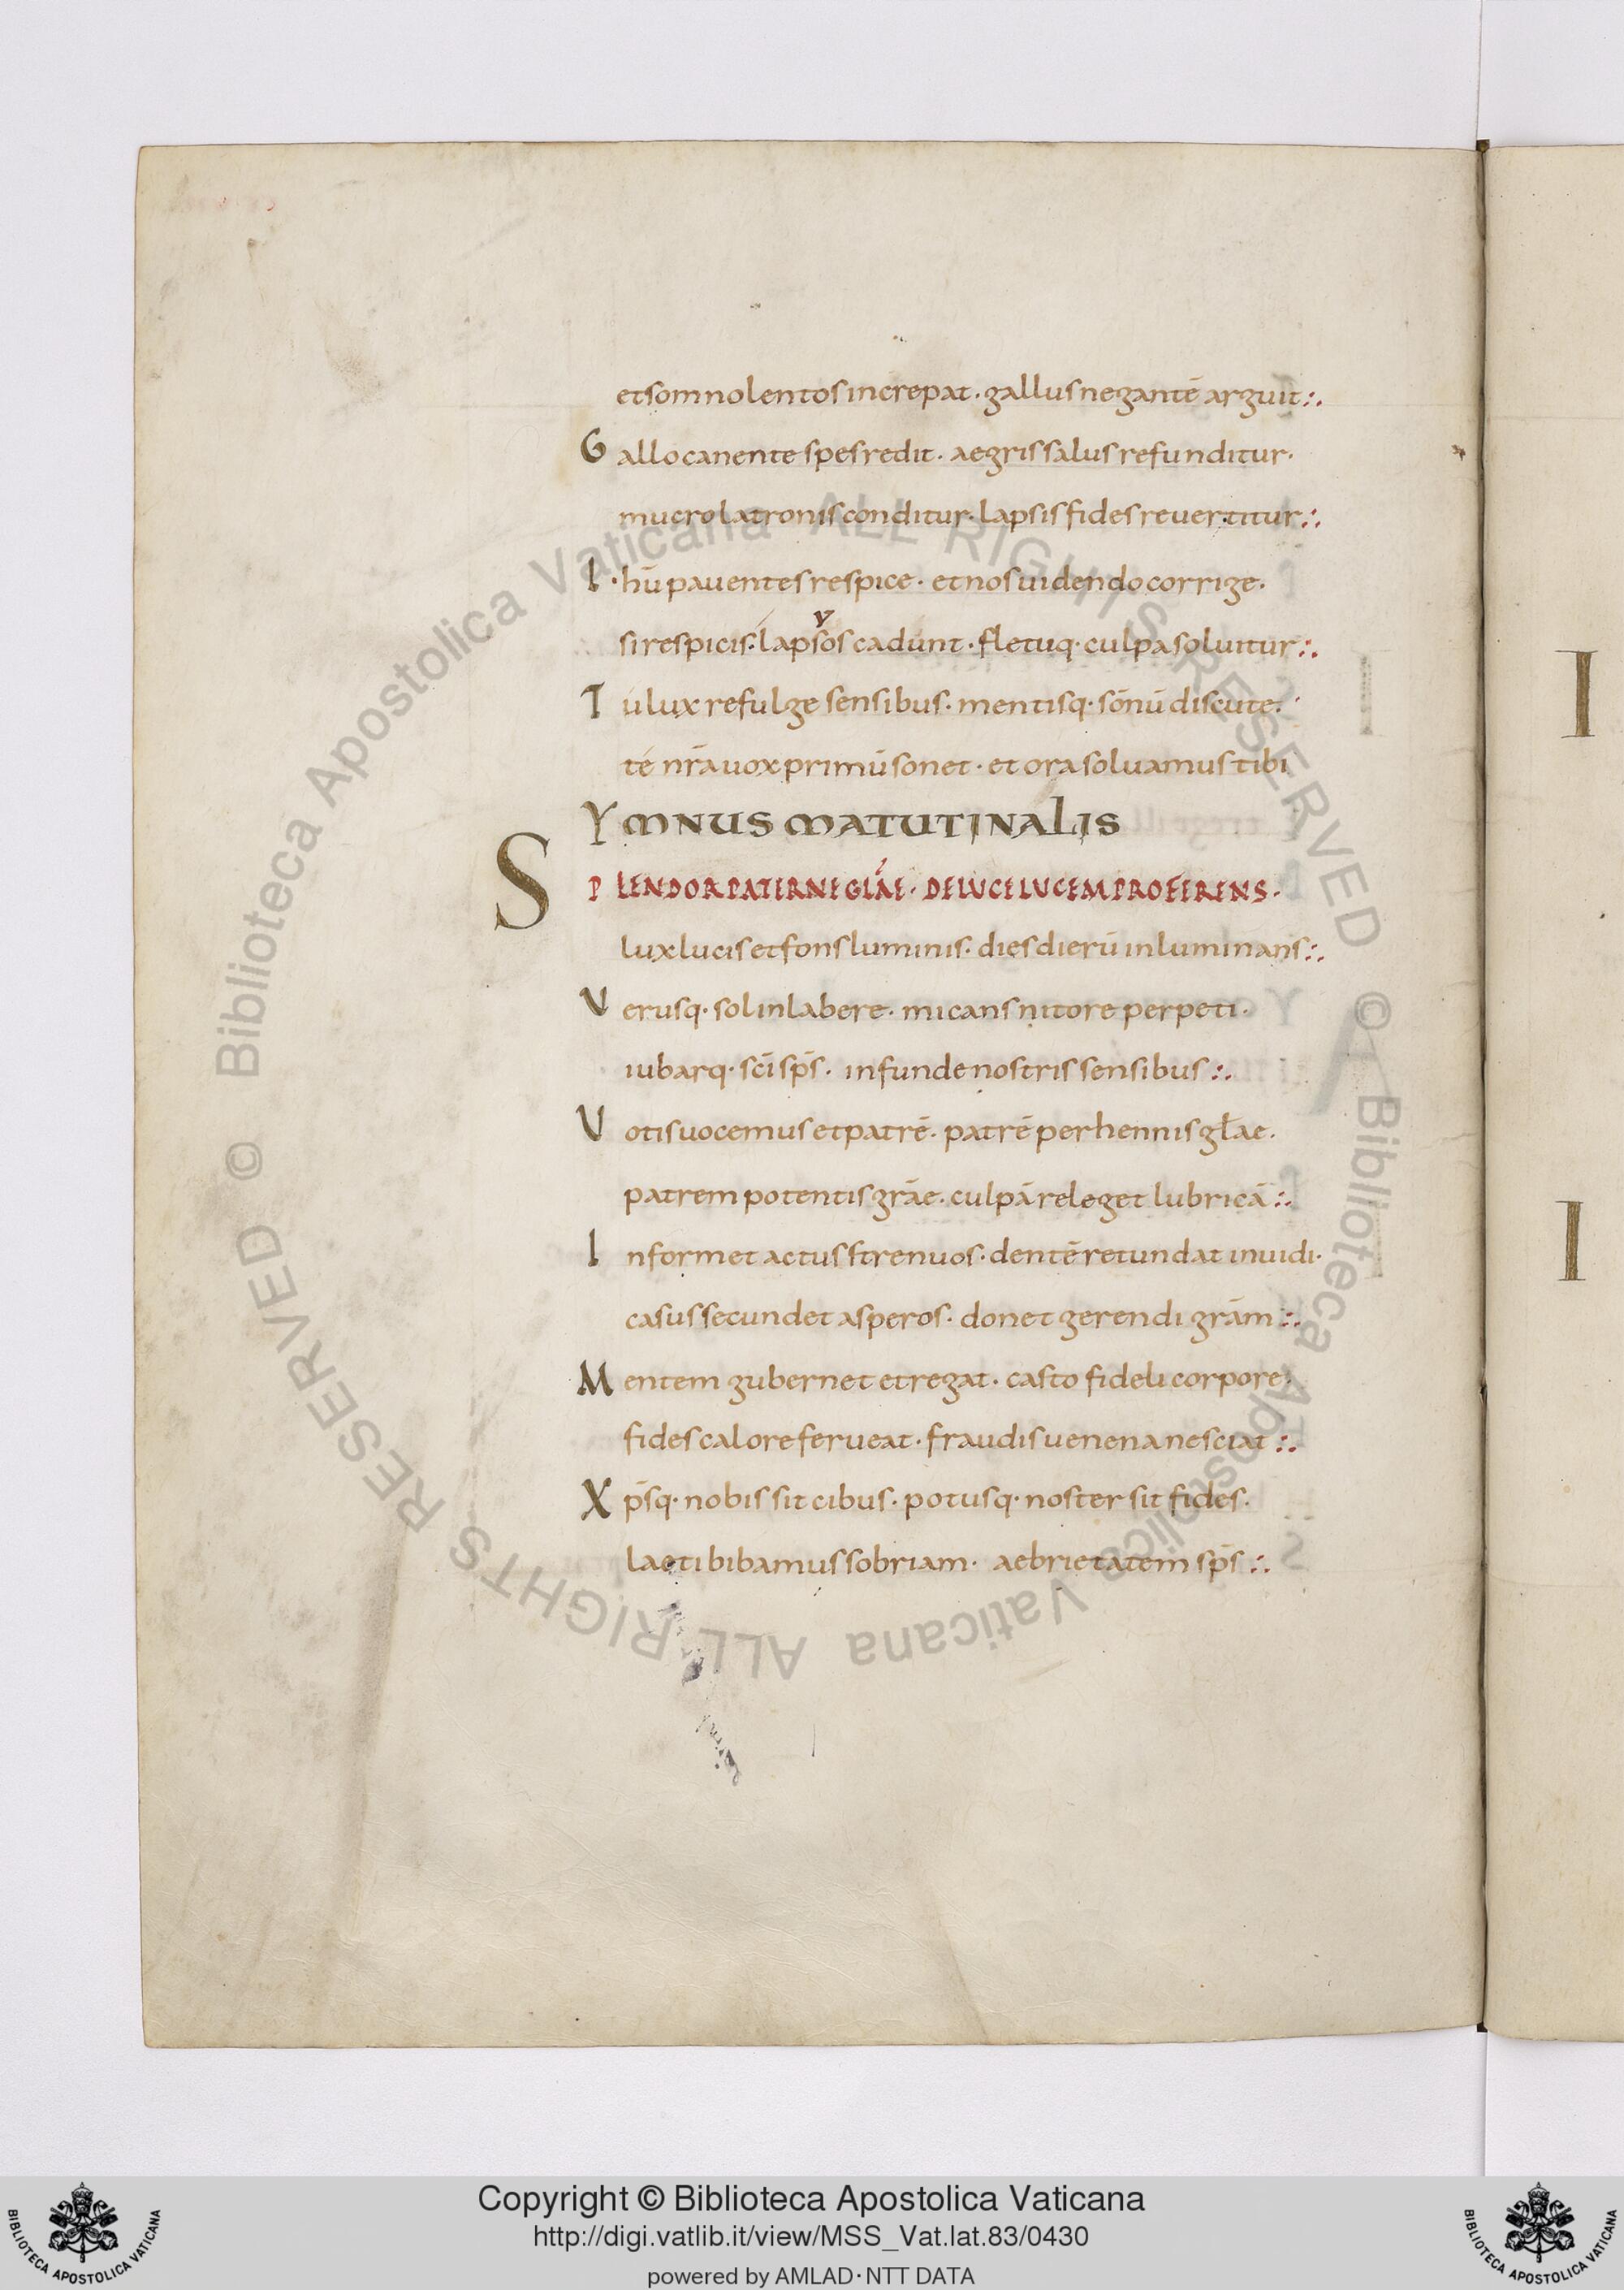 et somnolentos increpat · gallus negantē arguit :·
Gallo canente spes redit · aegris salus refunditur ·
mucro latronis conditur · lapsis fides reuertitur :·
I · hū pauentes respice · et nos uidendo corrige ·
v
si respicis · lapsos cadunt · fletuq · culpa soluitur :·
Tu lux refulge sensibus · mentisq · somnū discute ·
te nr̄a uox primū sonet · et ora soluamus tibi
YMNUS MATUTINALIS
SPLENDOR PATERNE GLAE · DE LUCE LUCEM PROFERENS ·
lux lucis et fons luminis · dies dierū inluminans :·
Verusq · sol inlabere · micans nitore perpeti ·
iubarq · scī sp̄s · infunde nostris sensibus :·
Votis uocemus et patrē · patrē perhennis głae ·
patrem potentis grāe · culpā releget lubricā :·
Informet actus strenuos · dentē retundat inuidi ·
casus secundet asperos · donet gerendi grām :·
Mentem gubernet et regat · casto fideli corpore ·
fides calore ferueat · fraudis uenena nesciat :·
Xp̄sq · nobis sit cibus · potusq · noster sit fides ·
laeti bibamus sobriam · aebrietatem sp̄s :·
I
I
© Biblioteca Apostolica Vaticana ALL RIGHTS RESERVED
© Biblioteca Apostolica Vaticana ALL RIGHTS RESERVED
Copyright © Biblioteca Apostolica Vaticana
http://digi.vatlib.it/view/MSS_Vat.lat.83/0430
powered by AMLAD·NTT DATA
BIBLIOTECA APOSTOLICA VATICANA
BIBLIOTECA APOSTOLICA VATICANA